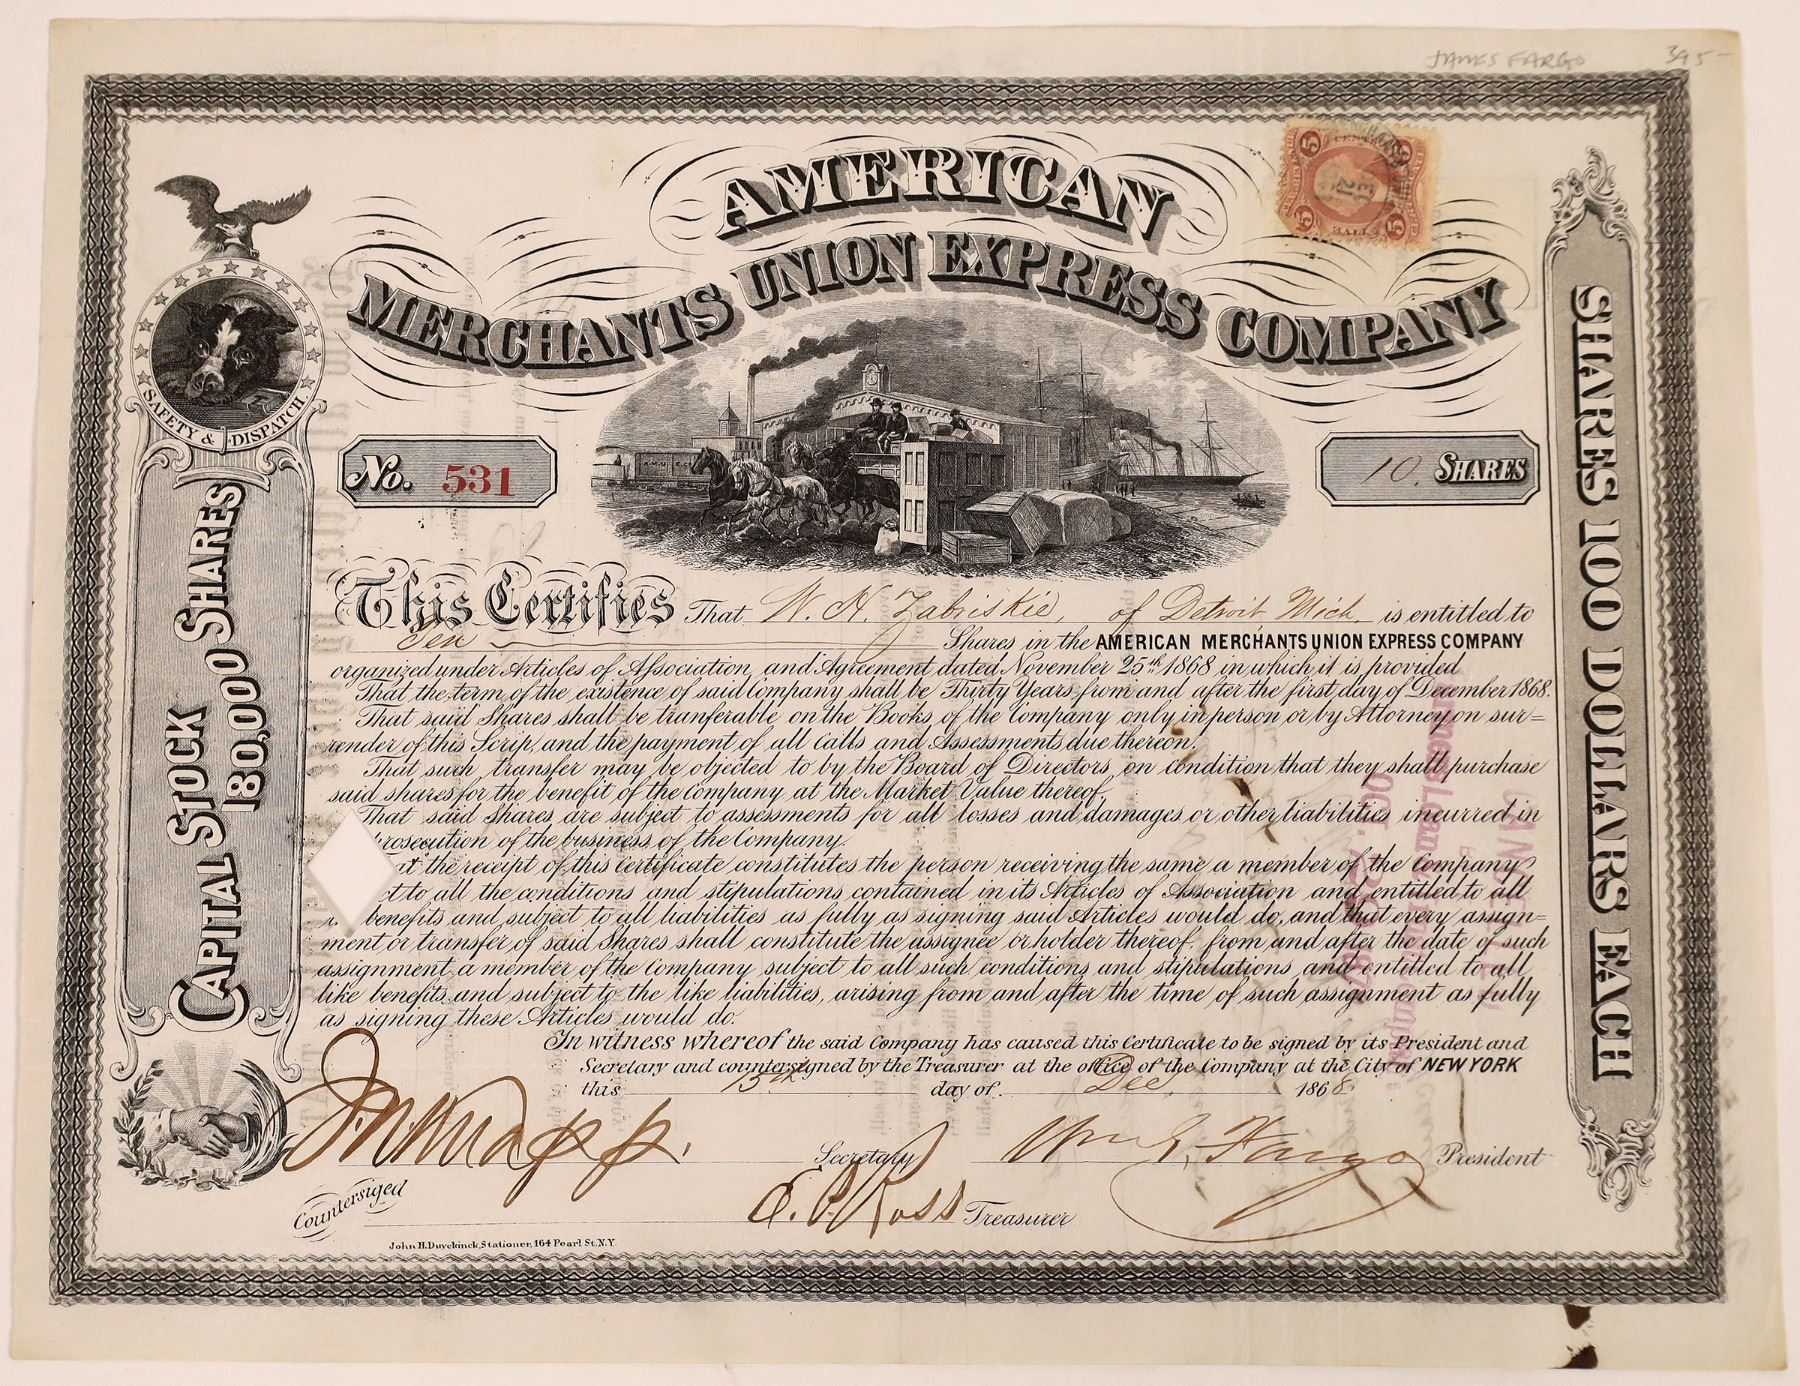 JAMES FARGO 395-
AMERICAN
MERCHANTS UNION EXPRESS COMPANY
SAFETY & DISPATCH
No. 531
10. SHARES
CAPITAL STOCK
180,000 SHARES
SHARES 100 DOLLARS EACH
This Certifies That W. H. Zabriskie, of Detroit Mich is entitled to
Ten Shares in the AMERICAN MERCHANTS UNION EXPRESS COMPANY
organized under Articles of Association and Agreement dated November 25th 1868 in which it is provided
That the term of the existence of said Company shall be Thirty Years from and after the first day of December 1868.
That said Shares shall be tranferable on the Books of the Company only in person or by Attorney on sur=
render of this Scrip and the payment of all Calls and Assessments due thereon.
That such transfer may be objected to by the Board of Directors on condition that they shall purchase
said shares for the benefit of the Company at the Market Value thereof.
That said Shares are subject to assessments for all losses and damages or other liabilities incurred in
rosecution of the business of the Company.
at the receipt of this Certificate constitutes the person receiving the same a member of the Company
ct to all the conditions and stipulations contained in its Articles of Association and entitled to all
benefits and subject to all liabilities as fully as signing said Articles would do, and that every assign=
ment or transfer of said Shares shall constitute the assignee or holder thereof, from and after the date of such
assignment a member of the Company subject to all such conditions and stipulations and entitled to all
like benefits and subject to the like liabilities, arising from and after the time of such assignment as fully
as signing these Articles would do.
In witness whereof the said Company has caused this Certificate to be signed by its President and
Secretary and countersigned by the Treasurer at the office of the Company at the City of NEW YORK
this 15th day of Dec 1868
J. N. Knapp. Secretary Wm G. Fargo President
Countersiged A. P. Ross Treasurer
John H. Duyckinck, Stationer, 164 Pearl St. N.Y.